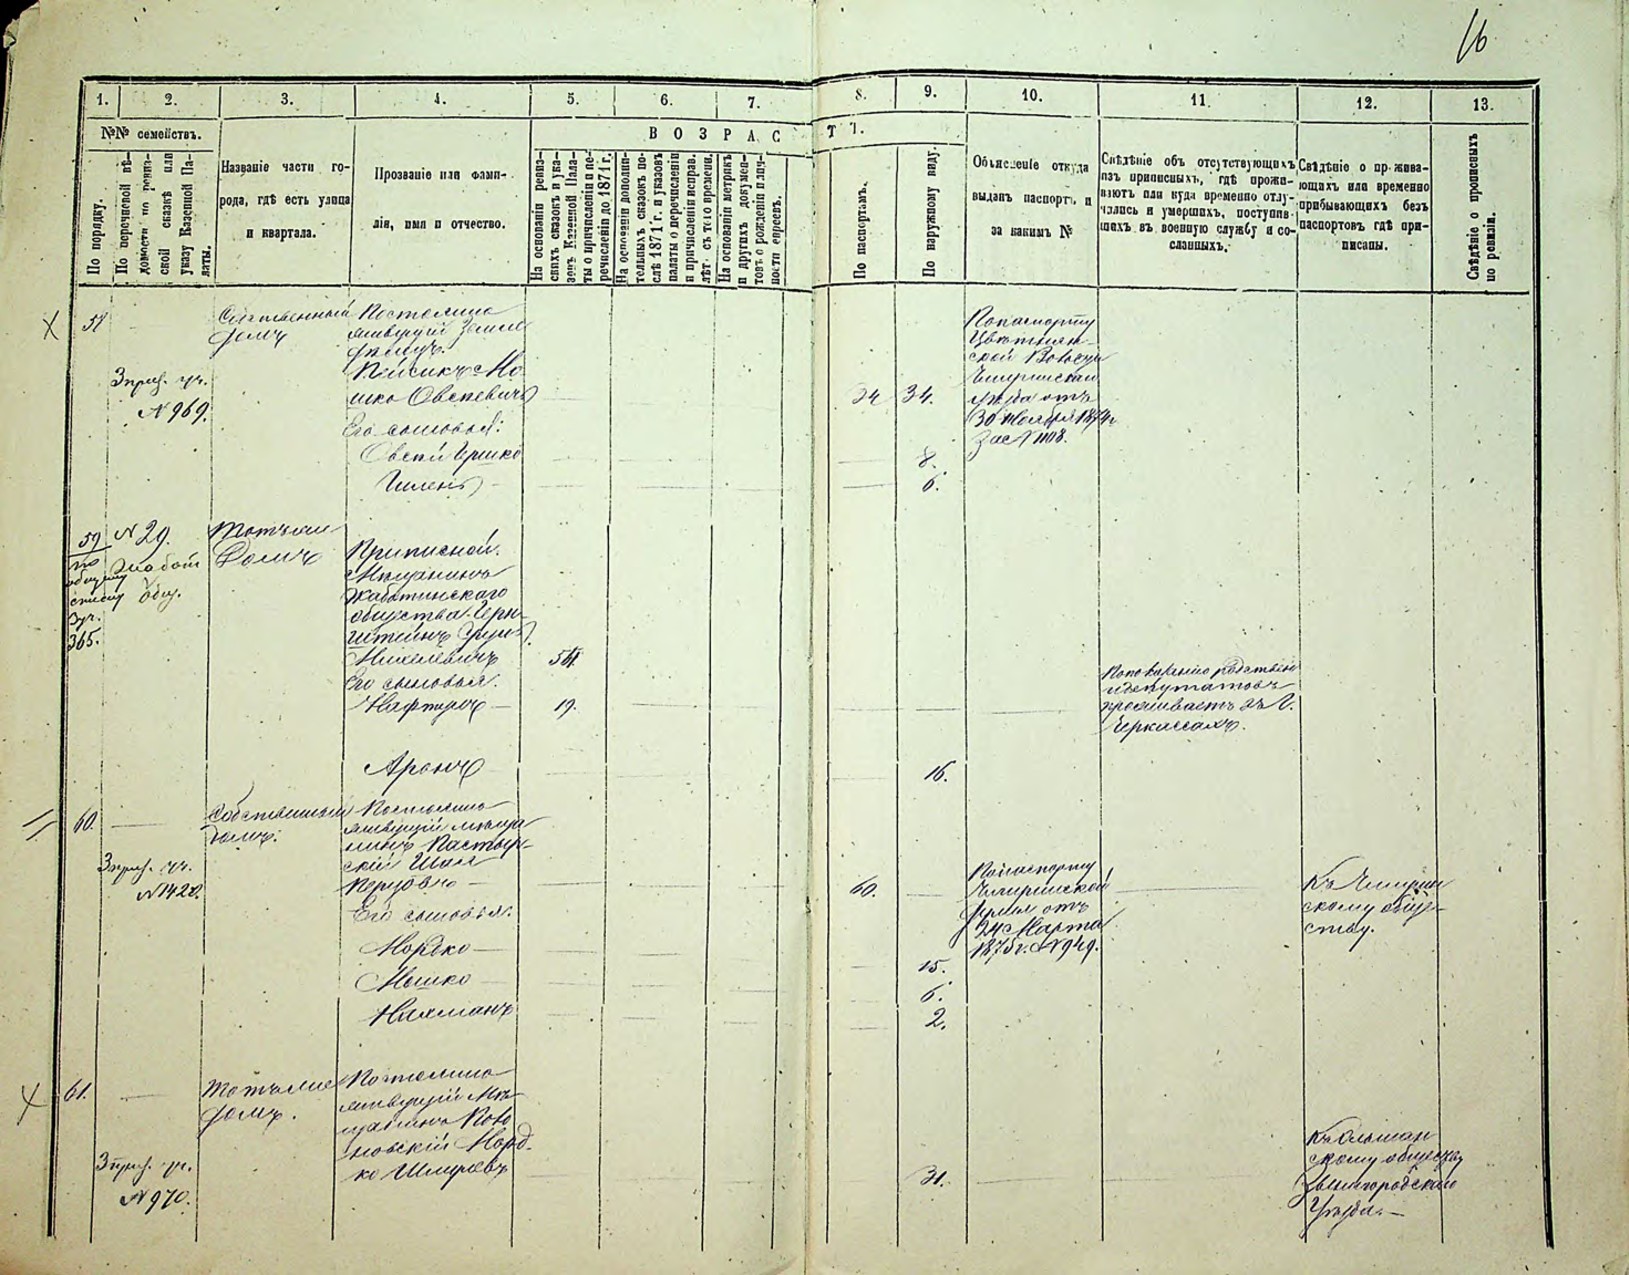 16
1. 2. 3. 4. 5. 6. 7. 8. 9. 10. 11. 12. 13.
№№ семействъ.
По порядку.
По перечневой вѣ-
домости по ревиз-
ской сказкѣ или
указу Казенной Па-
латы.
Названіе части го-
рода, гдѣ есть улица
и квартала.
Прозваніе или фами-
лія, имя и отчество.
ВОЗРАСТЪ.
На основаніи ревиз-
скихъ сказокъ и ука-
зовъ Казенной Пала-
ты о причисленіи и пе-
речисленіи до 1871 г.
На основаніи дополни-
тельныхъ сказокъ по-
слѣ 1871 г. и указовъ
палаты о перечисленіи
и причисленіи исправ.
лѣт. съ того времени.
На основаніи метрикъ
и других докумен-
товъ о рожденіи и лич-
ности евреевъ.
По паспортамъ.
По наружному виду.
Объясненіе откуда
выданъ паспортъ и
за какимъ №
Свѣдѣніе объ отсутствующихъ
изъ приписныхъ, гдѣ прожи-
ваютъ или куда временно отлу-
чились и умершихъ, поступив-
шихъ въ военную службу и со-
сланныхъ.
Свѣдѣніе о прожива-
ющихъ или временно
прибывающихъ безъ
паспортовъ гдѣ при-
писаны.
Свѣдѣніе о прописныхъ
по ревизіи.
58
Собственный
домъ
№ 969.
Постоянно
живущій Земле
дѣлецъ.
Мо
шко Овсеевичъ
Его сыновья:
Овсей Гершко
34 34.
8.
6.
По паспорту
Цвѣтнян-
ской Волости
Чигиринскаго
уѣзда отъ
30 Ноября 1874 г.
за № 1108.
59
по
общему
списку
365.
№ 29.
Жабот
общ.
Тотъ же
Домъ
Приписной.
Мѣщанинъ
Жаботинскаго
общества Берн-
штейнъ
Михелевичъ
54
Его сыновья.
Нафтула
19.
По показанію родствен
и депутатовъ
проживаетъ въ г.
Черкассахъ.
Аронъ
16.
60.
Собственный
домъ.
№ 1420.
Постоянно
живущій мѣща
нинъ Пастыр-
скій
60.
По паспорту
Чигиринской
Думы отъ
24 Марта
1875 г. № 949.
Къ Чигирин
скому обще-
ству.
Его сыновья:
Мордко
15.
Мошко
6.
Нахманъ
2.
61.
Тотъ же
домъ.
№ 970.
Постоянно
живущій Мѣ
щанинъ
новскій Морд-
ко Шмулевъ
31.
Къ Ольшан
скому обществу
Звенигородскаго
Уѣзда.